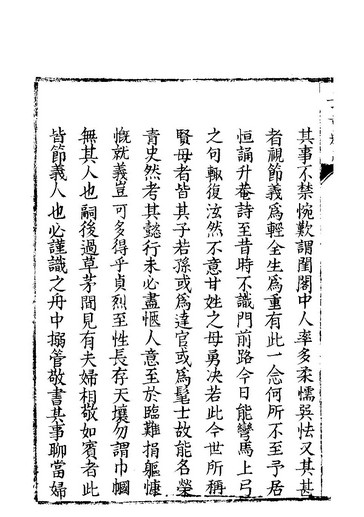 其事不禁惋歎謂閨閣中人率多柔懦巽怯又其甚
者視節義爲輕全生爲重有此一念何所不至予居
恒誦升菴詩至昔時不識門前路今日能彎馬上弓
之句輙復泫然不意甘姓之母勇决若此今世所稱
賢母者皆其子若孫或爲達官或爲髦士故能名榮
青史然考其懿行未必盡愜人意至於臨難捐軀慷
慨就義豈可多得乎貞烈至性長存天壤勿謂巾幗
無其人也嗣後過草茅間見有夫婦相敬如賓者此
皆節義人也必謹識之舟中搦管敬書其事聊當婦